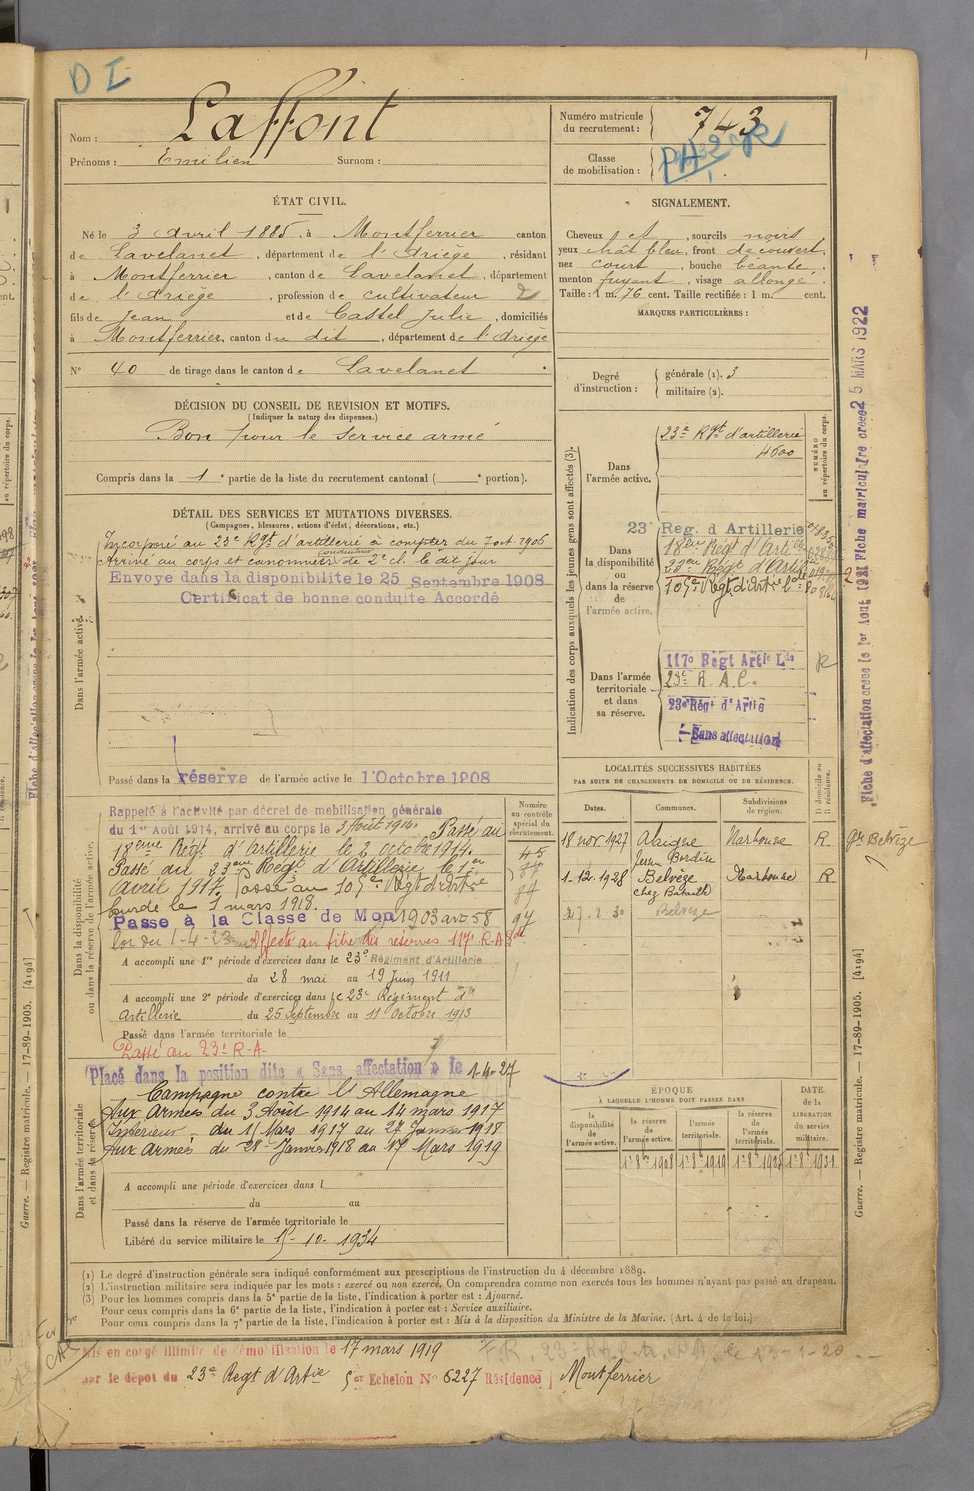 D I
Nom : Laffont
Prénoms : Emilien Surnom :
Numéro matricule du recrutement : 743
Classe de mobilisation :
ÉTAT CIVIL.
Né le 3 avril 1885, à Montferrier canton
de Lavelanet, département de l'Ariège, résidant
à Montferrier, canton de Lavelanet, département
de l'Ariège, profession de cultivateur 2
fils de Jean et de Castel Julie, domiciliés
à Montferrier, canton du dit, département de l'Ariège
N° 40 de tirage dans le canton de Lavelanet
DÉCISION DU CONSEIL DE REVISION ET MOTIFS.
(Indiquer la nature des dispenses.)
Bon pour le service armé
Compris dans la 1e partie de la liste du recrutement cantonal ( e portion).
SIGNALEMENT.
Cheveux et, sourcils noirs
yeux chât bleu, front découvert,
nez court, bouche béante,
menton fuyant, visage allongé.
Taille : 1 m. 76 cent. Taille rectifiée : 1 m. cent.
MARQUES PARTICULIÈRES :
Degré d'instruction : générale (1). 3
militaire (2).
DÉTAIL DES SERVICES ET MUTATIONS DIVERSES.
(Campagnes, blessures, actions d'éclat, décorations, etc.)
Dans l'armée active.
Incorporé au 23e Rgt d'artillerie à compter du 7 oct 1906
Arrivé au corps et canonnier conducteur de 2e cl. le dit jour
Envoyé dans la disponibilité le 25 Septembre 1908
Certificat de bonne conduite Accordé
Passé dans la réserve de l'armée active le 1 Octobre 1908
Dans la disponibilité ou dans la réserve de l'armée active.
Numéro au contrôle spécial du recrutement.
Rappelé à l'activité par décret de mobilisation générale
du 1er Août 1914, arrivé au corps le 3 Août 1914. Passé au
18eme Régt d'Artillerie le 2 octobre 1914.
Passé au 23eme Régt d'Artillerie le 1er
Avril 1917. Passé au 105e Regt d'Artie
lourde le 1 mars 1918.
Passé à la Classe de Mon 1903 art 58
loi du 1-4-23 Affecté au titre des réserves 117e R.A.Lde
45
97
A accompli une 1re période d'exercices dans le 23e Régiment d'Artillerie
du 28 mai au 19 Juin 1911
A accompli une 2e période d'exercices dans le 23e Régiment d'
Artillerie du 25 Septembre au 11 Octobre 1913
Passé dans l'armée territoriale le
Passé au 23e R.A.
Placé dans la position dite « Sans affectation » le 1-4-27
Dans l'armée territoriale et dans sa réserve.
Campagne contre l'Allemagne
Aux Armées du 3 Août 1914 au 14 mars 1917
Intérieur du 15 Mars 1917 au 27 Janvier 1918
Aux Armées du 28 Janvier 1918 au 17 Mars 1919
A accompli une période d'exercices dans l
du au
Passé dans la réserve de l'armée territoriale le
Libéré du service militaire le 15-10-1934
Indication des corps auxquels les jeunes gens sont affectés (3).
NUMÉRO au répertoire du corps.
Dans l'armée active. 23e Rgt d'artillerie
4600
Dans la disponibilité ou dans la réserve de l'armée active.
23e Reg. d Artillerie
18eme Régt d'Artie
23eme Régt d'Artie
105e Regt d'Artie Lde
Dans l'armée territoriale et dans sa réserve.
117e Régt Artie Lde
23e R.A.C.
23e Régt d'Artie
Sans affectation
LOCALITÉS SUCCESSIVES HABITÉES
PAR SUITE DE CHANGEMENTS DE DOMICILE OU DE RÉSIDENCE.
Dates. Communes. Subdivisions de région. D domicile ou R résidence.
18 nov. 1927 Alaigne Narbonne R.
1-12-1928 Belvèze Narbonne R
27-2-30 Belvèze
ÉPOQUE
À LAQUELLE L'HOMME DOIT PASSER DANS
la disponibilité de l'armée active. la réserve de l'armée active. l'armée territoriale. la réserve de l'armée territoriale.
DATE de la LIBÉRATION du service militaire.
1er 8bre 1908 1er 8bre 1919
(1) Le degré d'instruction générale sera indiqué conformément aux prescriptions de l'instruction du 4 décembre 1889.
(2) L'instruction militaire sera indiquée par les mots : exercé ou non exercé. On comprendra comme non exercés tous les hommes n'ayant pas passé au drapeau.
(3) Pour les hommes compris dans la 5e partie de la liste, l'indication à porter est : Ajourné.
Pour ceux compris dans la 6e partie de la liste, l'indication à porter est : Service auxiliaire.
Pour ceux compris dans la 7e partie de la liste, l'indication à porter est : Mis à la disposition du Ministre de la Marine. (Art. 4 de la loi.)
Mis en congé illimité de démobilisation le 17 mars 1919
par le dépôt du 23e Regt d'Artie Echelon No 6227 Résidence Montferrier
Fiche d'affectation créée le 1er Août 1921 Fiche matriculaire créée 25 MARS 1922
Guerre. — Registre matricule. — 17-89-1905. [4194]
Guerre. — Registre matricule. — 17-89-1905. [4194]